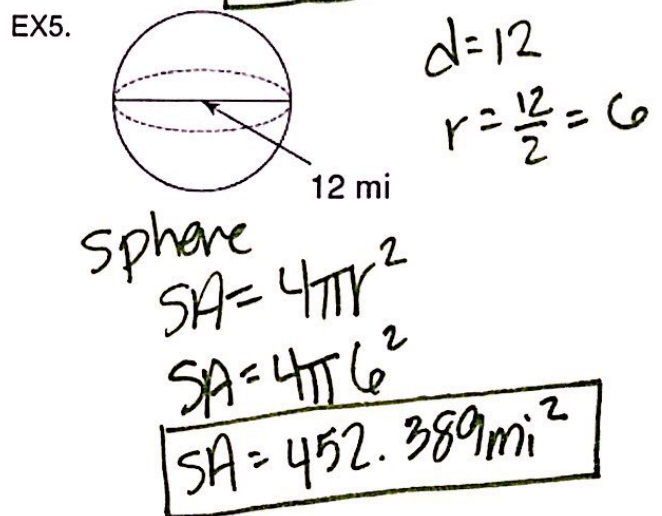 EX5.
d=12
r = 12/2 = 6
12 mi
Sphere
SA = 4πr²
SA = 4π6²
SA = 452.389mi²